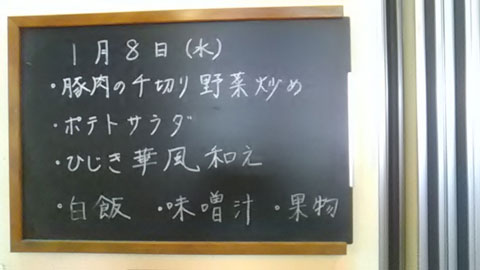 1月8日(水)
・豚肉の千切り野菜炒め
・ポテトサラダ
・ひじき華風和え
・白飯 ・味噌汁 ・果物